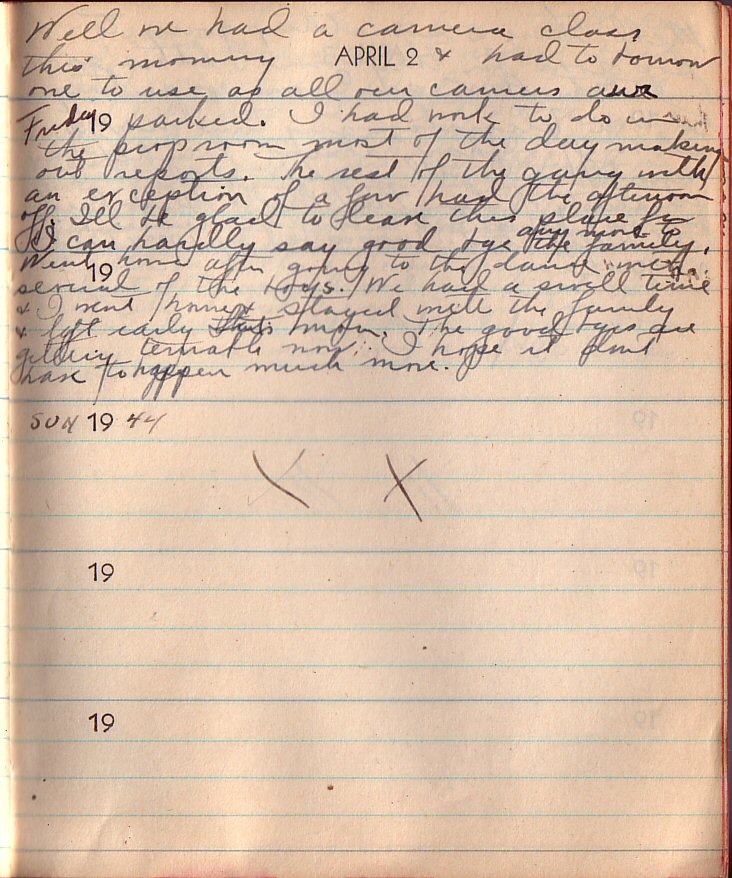 Well we had a camera class
this morning APRIL 2 & had to borrow
one to use as all our camers are
Friday 19 packed. I had work to do in
the prop room most of the day making
out reports. The rest of the gang with
an exception of a few had the afternoon
off. Ill be glad to leave this place for
I can hardly say good bye any more to the family.
Went 19 home after going to the dance with
several of the boys. We had a swell time
& I went home & stayed with the family
& left early this morn. The good byes are
getting terrable now. I hope it dont
have to happen much more.
SUN 19 44
X X
19
19